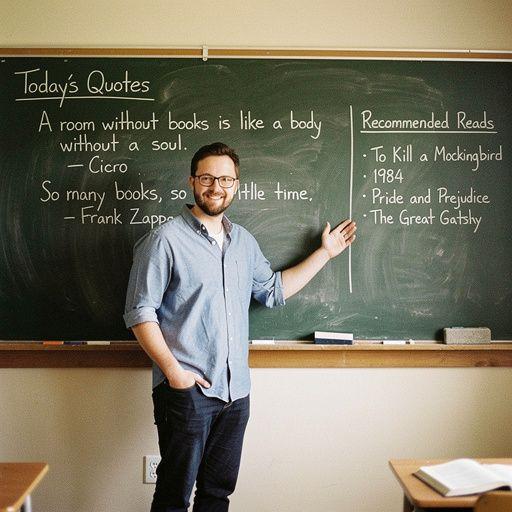 Today's Quotes
A room without books is like a body
without a soul.
— Cicro
So many books, so time.
— Frank Zappa
Recommended Reads
· To Kill a Mockingbird
· 1984
· Pride and Prejudice
· The Great Gatshy